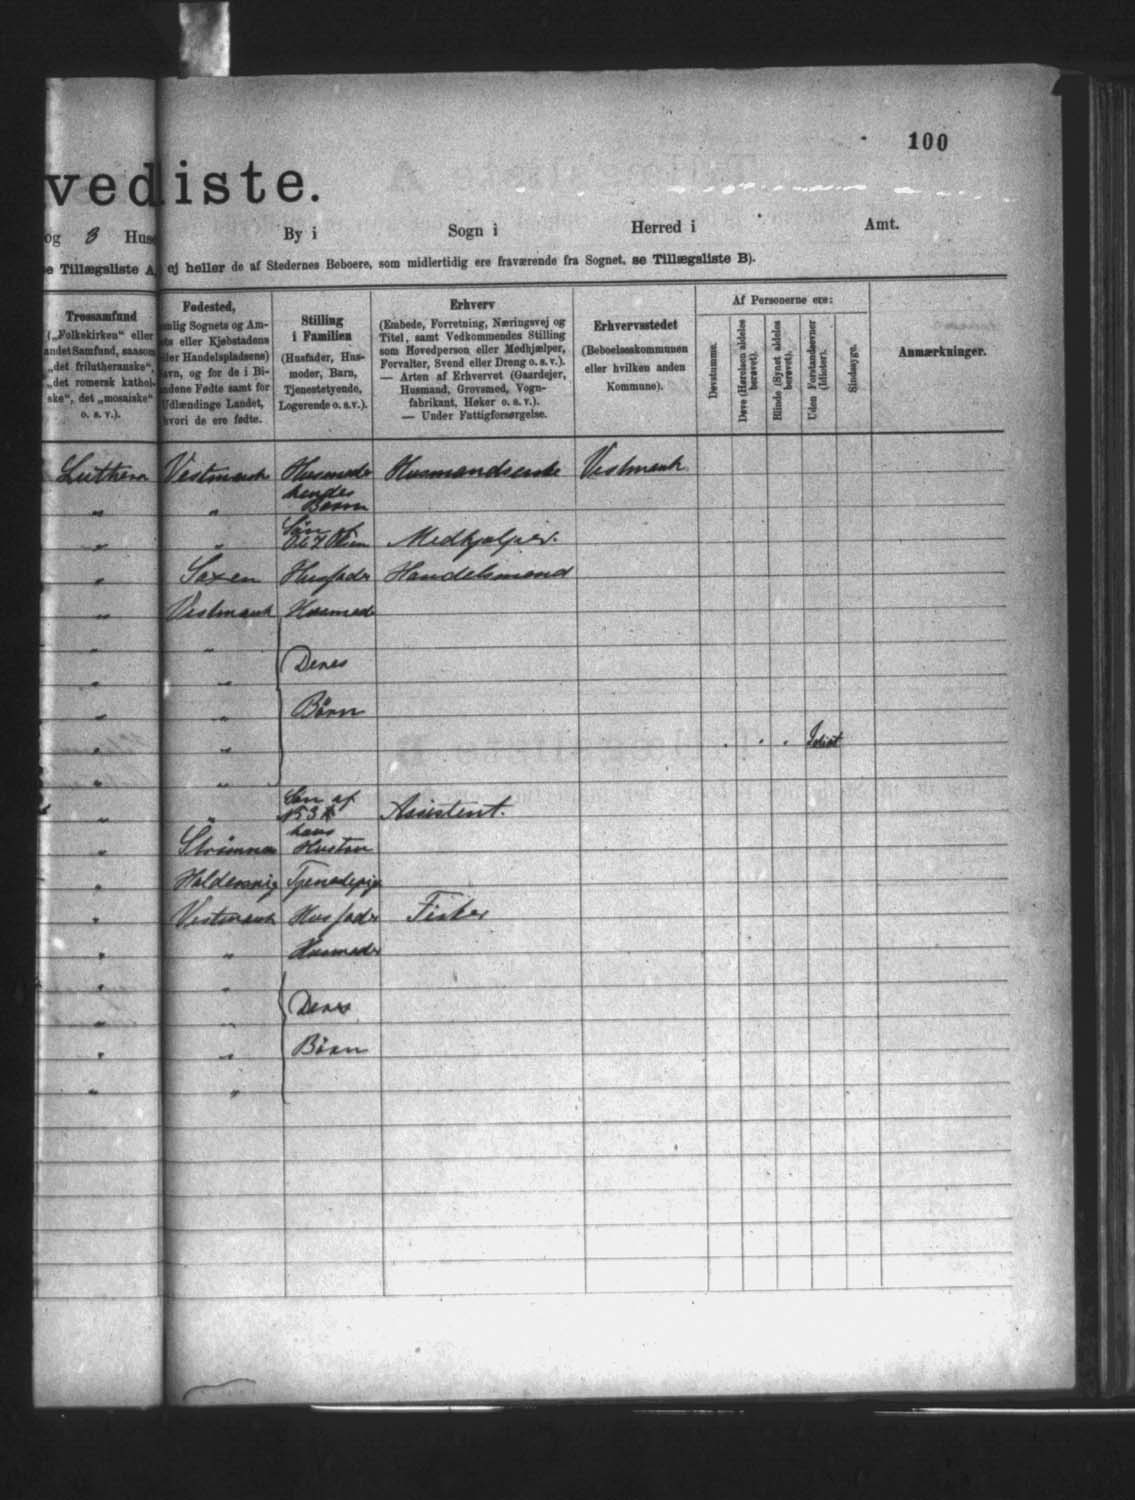 100
vediste.
og 3 Huse By i Sogn i Herred i Amt.
e Tillægsliste A, ej heller de af Stedernes Beboere, som midlertidig ere fraværende fra Sognet, se Tillægsliste B).
Trossamfund
(„Folkekirken“ eller
andet Samfund, saasom
„det frilutheranske“,
„det romersk kathol-
ske“, det „mosaiske“
o. s. v.).
Fødested,
nlig Sognets og Am-
ts eller Kjøbstadens
ller Handelspladsens)
avn, og for de i Bi-
ndene Fødte samt for
Udlændinge Landet,
hvori de ere fødte.
Stilling
i Familien
(Husfader, Hus-
moder, Barn,
Tjenestetyende,
Logerende o. s. v.).
Erhverv
(Embede, Forretning, Næringsvej og
Titel, samt Vedkommendes Stilling
som Hovedperson eller Medhjælper,
Forvalter, Svend eller Dreng o. s. v.).
— Arten af Erhvervet (Gaardejer,
Husmand, Grovsmed, Vogn-
fabrikant, Høker o. s. v.).
— Under Fattigforsørgelse.
Erhvervsstedet
(Beboelseskommunen
eller hvilken anden
Kommune).
Af Personerne ere:
Døvstumme.
Døve (Hørelsen aldeles
berøvet).
Blinde (Synet aldeles
berøvet).
Uden Forstandsevner
(Idioter).
Sindssyge.
Anmærkninger.
Luthera Vestmanh Husmoder Husmandsenke Vestmanh
hendes
" " Børn
Søn af
" " Medhjælper.
" Saxen Husfader Handelsmand
" Vestmanh Husmod
" "
Deres
" "
Børn
" "
" " Idiot
" "
Søn af
" " Assistent.
hans
" Strømnæs Hustru
" Haldersvig Tjenestepige
" Vestmanh Husfader Fisker
" " Husmoder
" "
Deres
" "
Børn
" "
" "